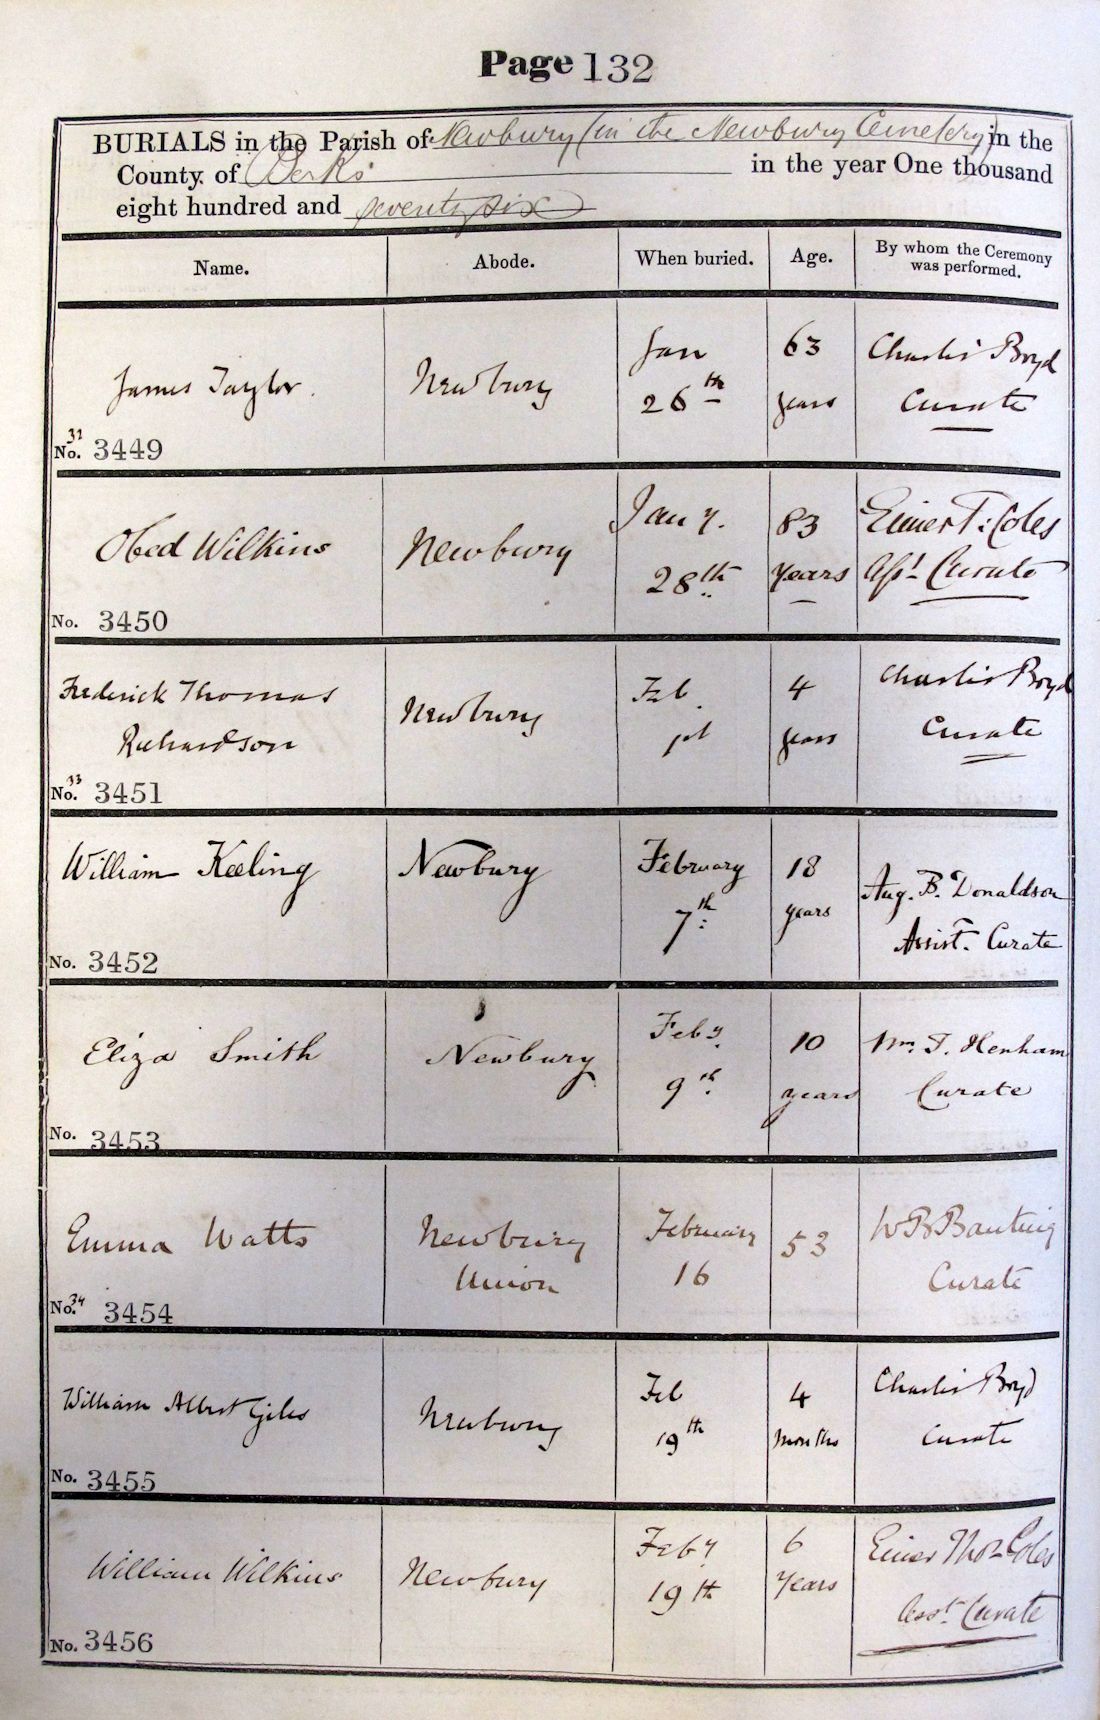 Page 132
BURIALS in the Parish of Newbury (in the Newbury Cemetery) in the
County of Berks in the year One thousand
eight hundred and seventy six
Name. Abode. When buried. Age. By whom the Ceremony
was performed.
James Taylor. Newbury Jan 26th 63 years Charles Boyd Curate
31
No. 3449
Obed Wilkins Newbury Jany. 28th 83 years T: Coles Asst Curate
No. 3450
Frederick Thomas
Richardson Newbury Feb. 1st 4 years Charles Boyd Curate
33
No. 3451
William Keeling Newbury February 7th 18 years Aug. B. Donaldson Assist. Curate
No. 3452
Eliza Smith Newbury Feby. 9th 10 years Wm. F. Henham Curate
No. 3453
Emma Watts Newbury Union February 16 53 W B Banting Curate
34
No. 3454
William Albert Giles Newbury Feb 19th 4 months Charles Boyd Curate
No. 3455
William Wilkins Newbury Feby 19th 6 years Thos Coles Asst. Curate
No. 3456